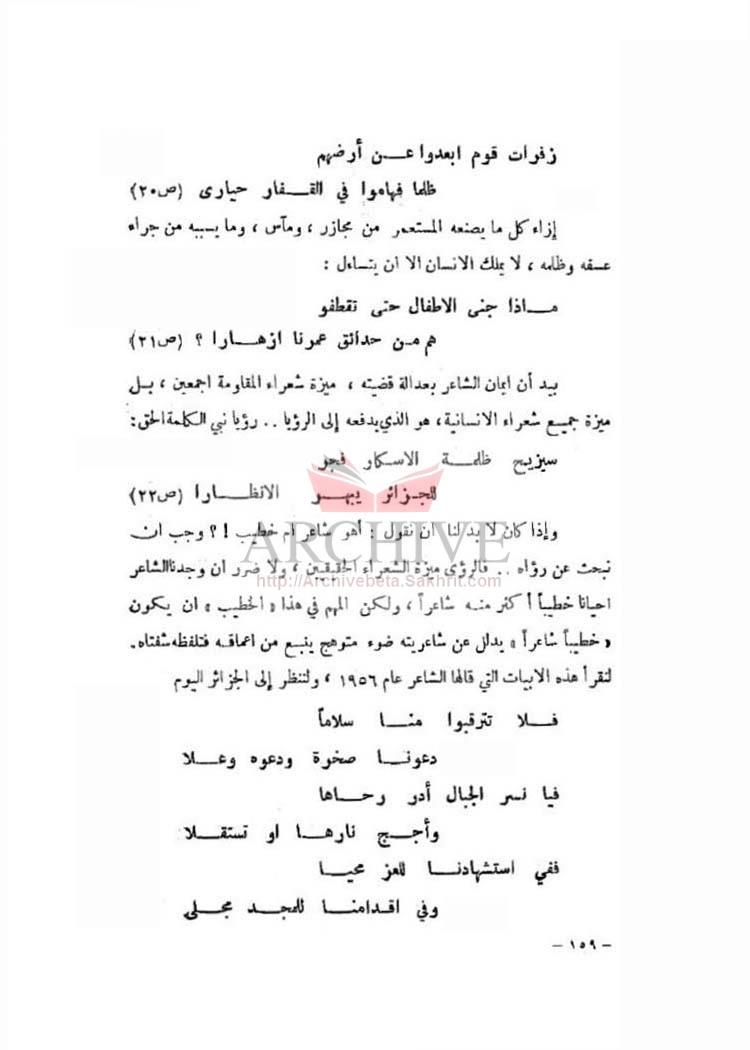 زفرات قوم ابعدوا عـــن أرضهم
ظلما فهاموا في القـــفار حيارى (ص٢٠)
إزاء كل ما يصنعه المستعمر من مجازر ، ومآس ، وما يسببه من جراء
عسفه وظلمه ، لا يملك الانسان الا ان يتساءل :
مـــاذا جنى الاطفال حتى تقطفو
هم مـن حدائق عمرنا ازهــارا ؟ (ص٢١)
بيد أن ايمان الشاعر بعدالة قضيته ، ميزة شعراء المقاومة اجمعين ، بــل
ميزة جميــع شعراء الانسانية، هو الذي يدفعه إلى الرؤيا .. رؤيا نبي الكلمة الحق:
سيزيـح ظلمـــة الاسـكار فجر
للجــزائر يبهــر الانظــارا (ص٢٢)
ARCHIVE
وإذا كان لا بد لنا ان نقول : أهو شاعر ام خطيب !؟ وجب ان
http://Archivebeta.Sakhrit.com
نبحث عن رؤاه .. فالرؤى ميزة الشعراء الحقيقيين ، ولا ضرر ان وجدنا الشاعر
احيانا خطيباً أكثر منـه شاعراً ، ولكن المهم في هذا « الخطيب » ان يكون
« خطيباً شاعراً » يدلل عن شاعريته ضوء متوهج ينبــع من اعماقـه فتلفظه شفتاه.
لنقرأ هذه الابيات التي قالها الشاعر عام ١٩٥٦ ، ولننظر إلى الجزائر اليوم
فــلا تترقبوا منــا سلاماً
دعونــا صخرة ودعوه وعـــلا
فيا نسر الجبال أدر رحــاها
وأجــج نارهــا او تستقــلا
ففي استشهادنــا للعز محيــا
وفي اقدامنــا للمجــد مجــلى
– ١٥٩ –